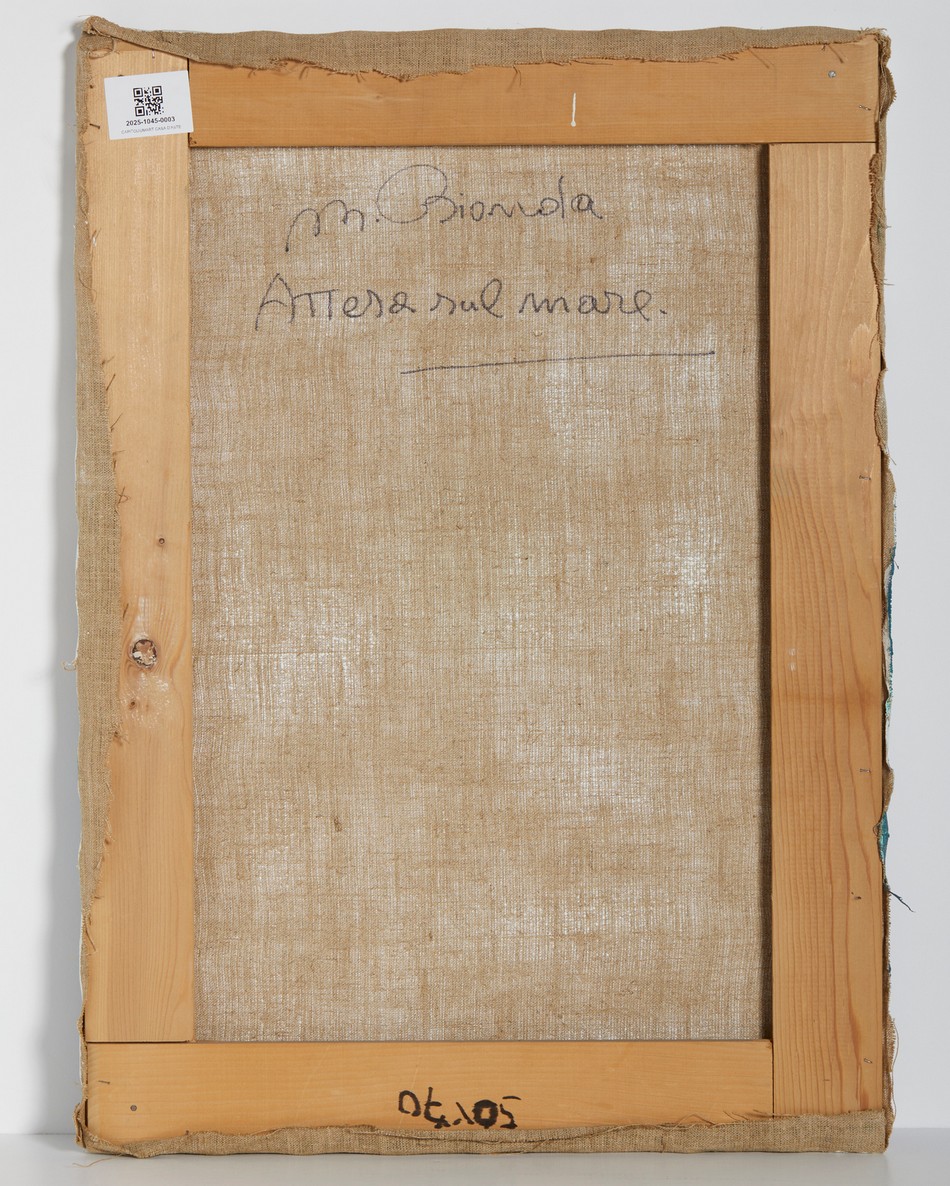 2025-1045-0003
M. Bionda
Attesa sul mare.